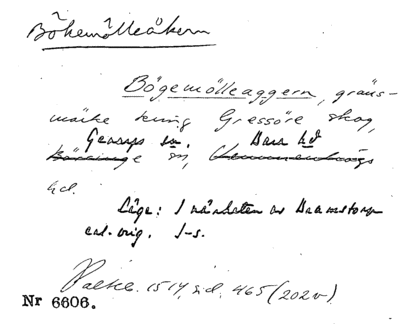 Bökemölleåkern
Bögemölleaggern, gräns-
märke kring Gressöre skog,
Genarps sn. Bara hd
hd.
Läge: I närheten av Baramstorp
enl. orig. J-s.
Palteb. 1514, sid. 465 (202v)
Nr 6606.